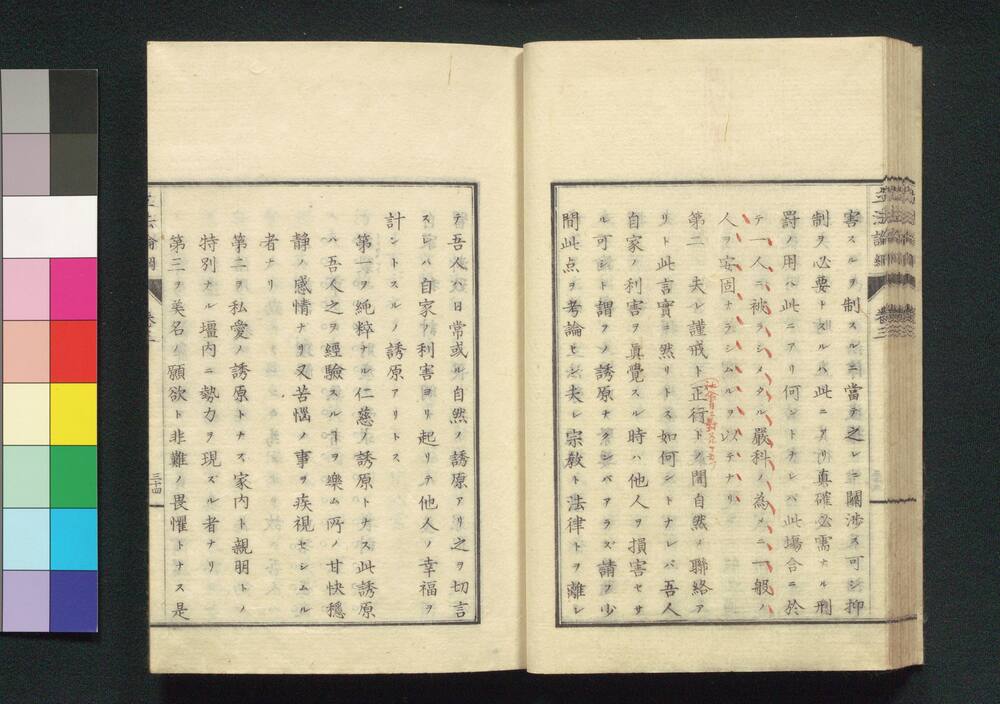 害スルヲ制スルニ當テ之レニ關渉ス可シ抑
制ヲ必要トスルハ此ニアリ真確必需ナル刑
罰ノ用ハ此ニアリ何ントナレバ此場合ニ於
テ一人ニ被ラシメタル嚴科ノ為メニ一般ノ
人ヲ安固ナラシムルヲ以テナリ
第二 夫レ謹戒ト正行トノ間自然ノ聯絡ア
リト此言實ニ然リトス如何ントナレバ吾人
自家ノ利害ヲ眞覺スル時ハ他人ヲ損害セサ
ル可シト謂フノ誘原ナクンバアラズ請フ少
間此点ヲ考論セン夫レ宗教ト法律トヲ離レ
テ吾人ハ日常或ル自然ノ誘原アリ之ヲ切言
スレハ自家ノ利害ヨリ起リテ他人ノ幸福ヲ
計ントスルノ誘原アリトス
第一ヲ純粹ナル仁慈ノ誘原トナス此誘原
ハ吾人之ヲ經驗スルヿヲ樂ム所ノ甘快穩
靜ノ感情ナリ又苦惱ノ事ヲ疾視セシムル
者ナリ
第二ヲ私愛ノ誘原トナス家内ト親朋トノ
特別ナル壃内ニ勢力ヲ現ズル者ナリ
第三ヲ美名ノ願欲ト非難ノ畏懼トナス是
三十四